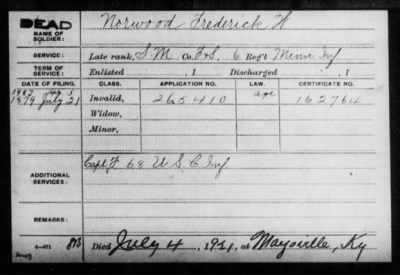 DEAD
NAME OF SOLDIER:
Norwood Frederick W
SERVICE:
Late rank, S.M Co. F&S, 6 Reg't Minn Inf
TERM OF SERVICE:
Enlisted , 1 Discharged , 1
DATE OF FILING. CLASS. APPLICATION NO. LAW. CERTIFICATE NO.
1879 July 21 Invalid, 265410 age 162764
Widow,
Minor,
ADDITIONAL SERVICES:
Capt F 68 U S C Inf
REMARKS:
Died July 4, 1921, at Maysville, Ky